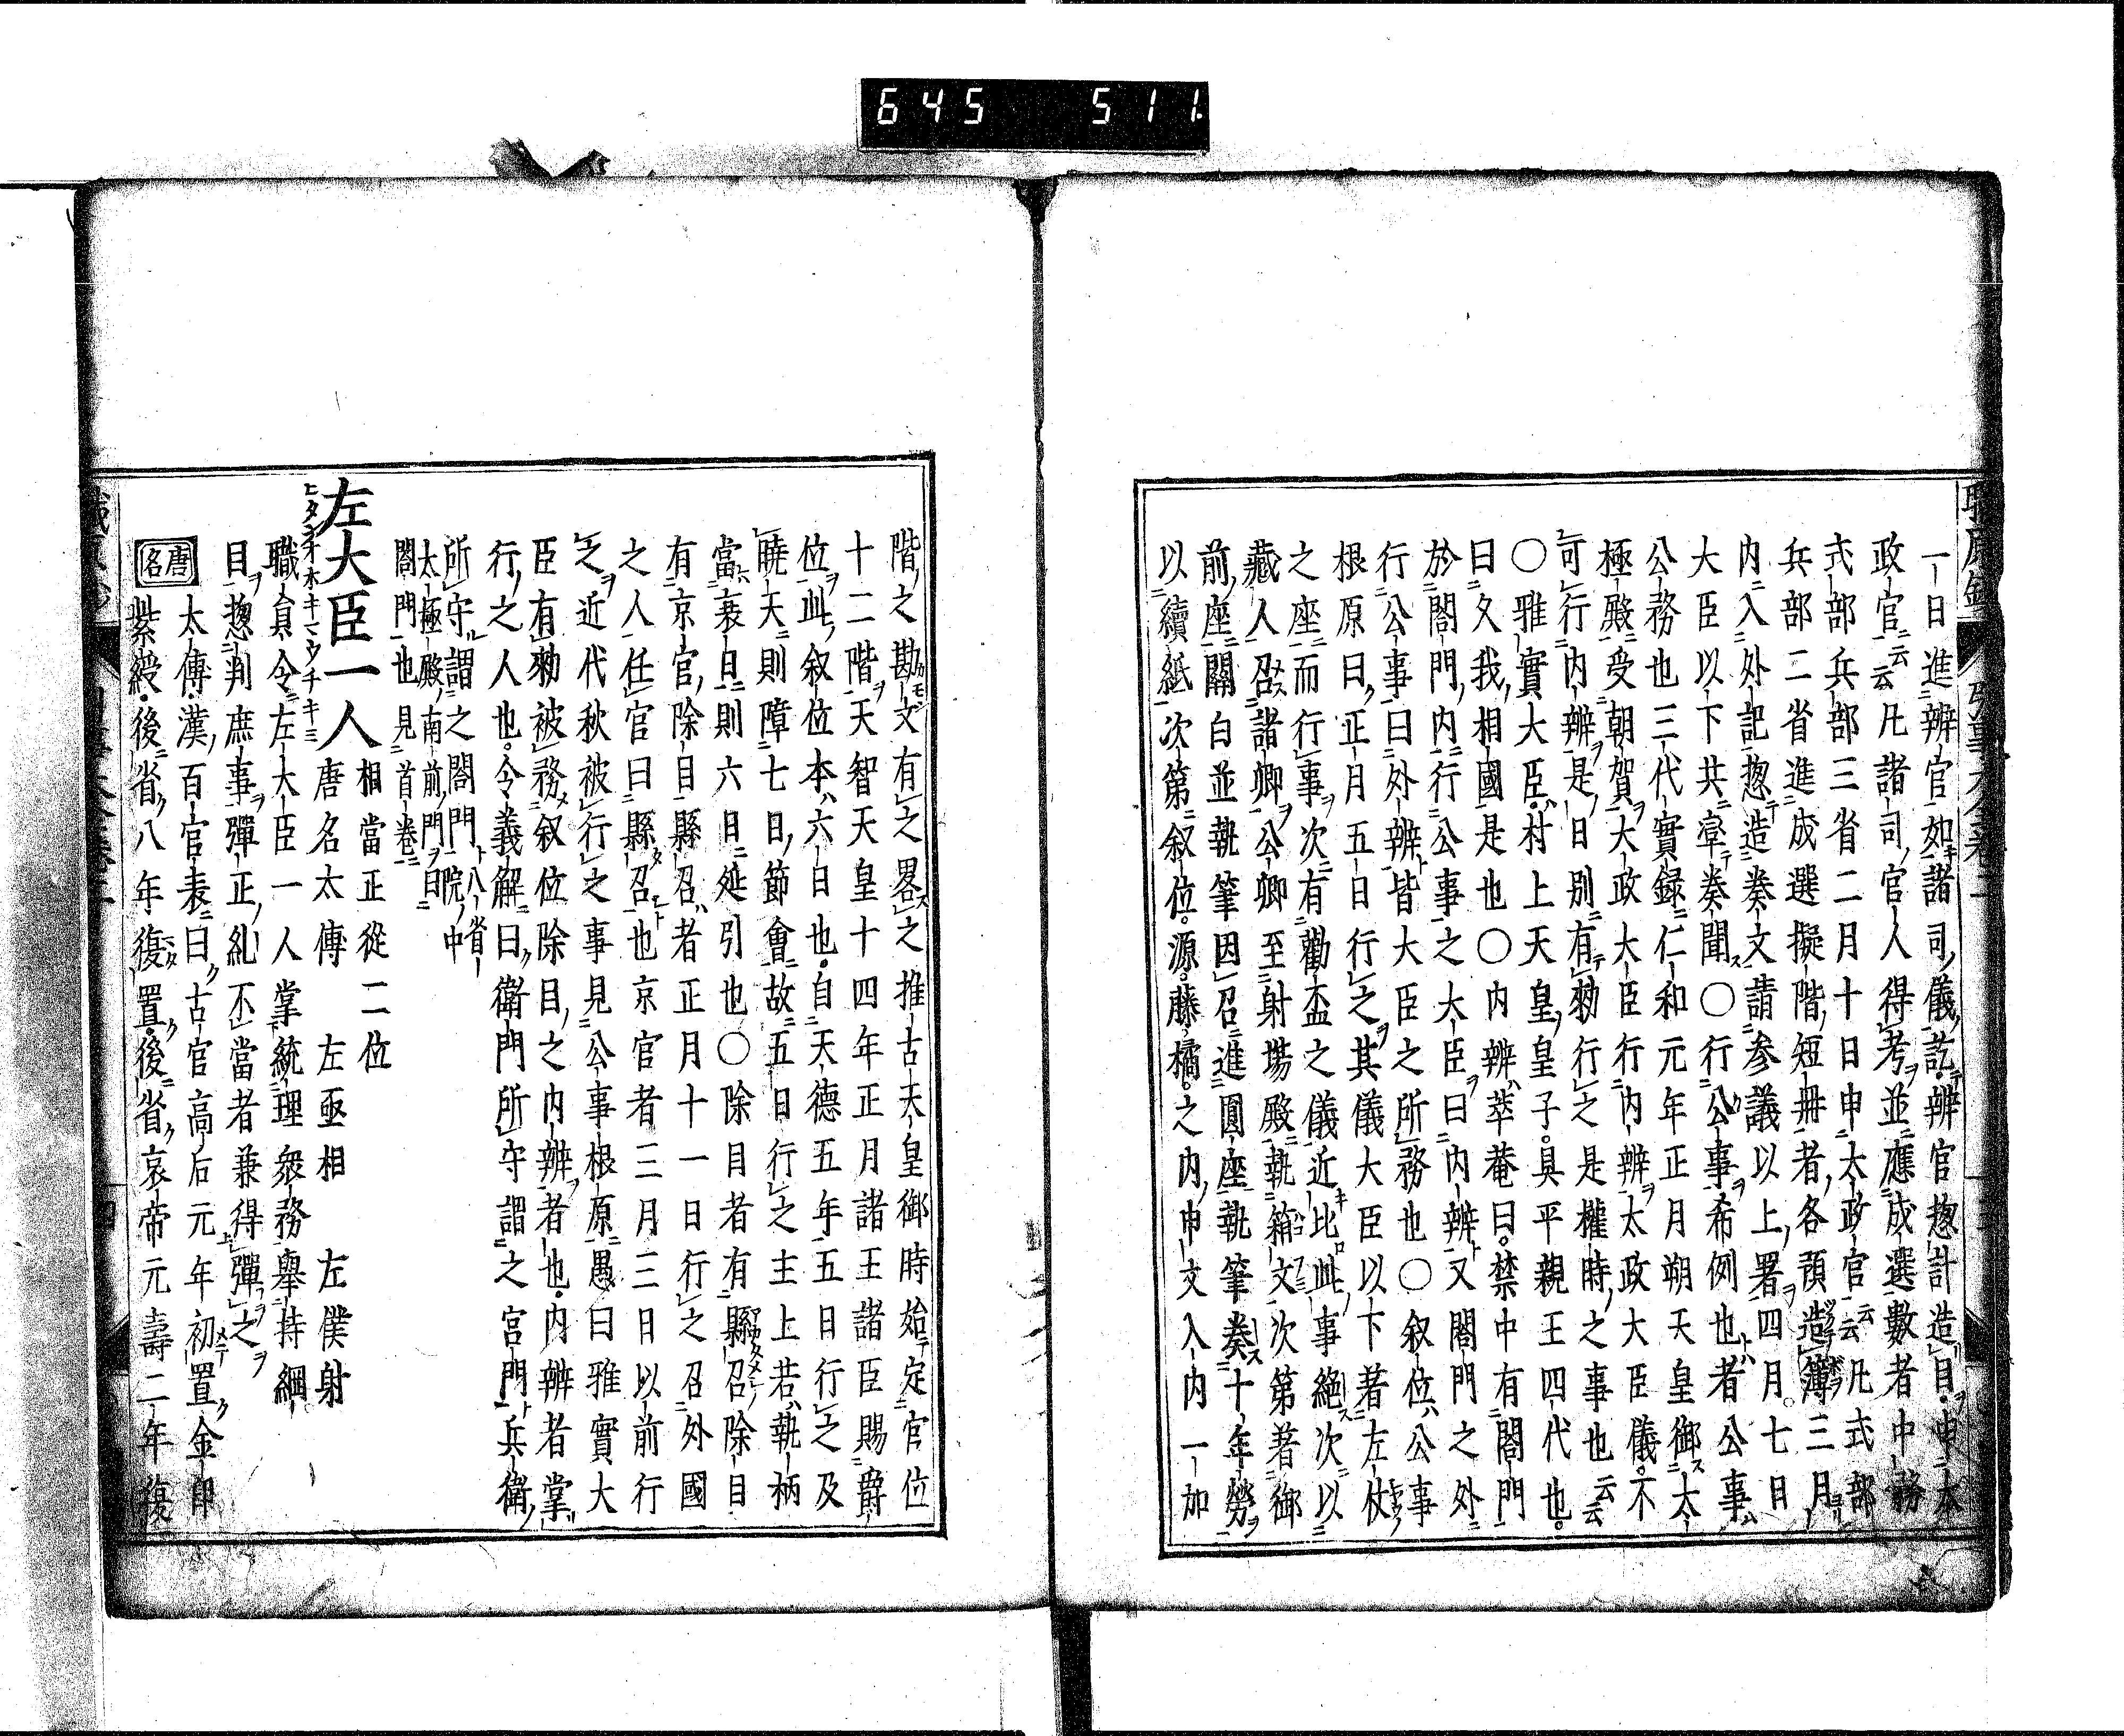 645 511
一日進辨官如諸司儀訖辨官惣計造目申太
政官云云凡諸司官人得考並應成選數者中務
式部兵部三省二月十日申太政官云云凡式部
兵部二省進成選擬階短冊者各預造簿三月
内入外記惣造奏文請参議以上署四月七日
大臣以下共率奏聞〇行公事希例也者公事
公務也三代實録仁和元年正月朔天皇御太
極殿受朝賀大政大臣行内辨太政大臣儀不
可行内辨是日別有勅行之是權時之事也云云
〇雅實大臣村上天皇皇子具平親王四代也
曰久我相國是也〇内辨萃菴曰禁中有閤門
於閤門内行公事之大臣曰内辨又閤門之外
行公事曰外辨皆大臣之所務也〇叙位公事
根原曰正月五日行之其儀大臣以下著左仗
之座而行事次有勸盃之儀近比此事絶次以
藏人召諸卿公卿至射場殿執箱文次第著御
前座關白並執筆因召進圓座執筆奏十年勞
以續紙次第叙位源藤橘之内申文入内一加
階之勘文有之畧之推古天皇御時始定官位
十二階天智天皇十四年正月諸王諸臣賜爵
位此叙位本六日也自天德五年五日行之及
曉天則障七日節會故五日行之主上若執柄
當衰日則六日延引也〇除目者有縣召除目
有京官除目縣召者正月十一日行之召外國
之人任官曰縣召也京官者三月三日以前行
之近代秋被行之事見公事根原愚曰雅實大
臣有勅被務叙位除目之内辨者也内辨者掌
行之人也令義解曰衛門所守謂之宮門兵衛
所守謂之閤門 八省院中
太極殿南前門曰
閤門也見首卷
左大臣一人 相當正從二位
唐名太傳 左亟相 左僕射
ヒタンオホキマウチキミ
職員令左大臣一人掌統理衆務舉持綱
目惣判庶事彈正糺不當者兼得彈之
唐名 太傳漢百官表曰古官高后元年初置金印
紫綬後省八年復置後省哀帝元壽二年復